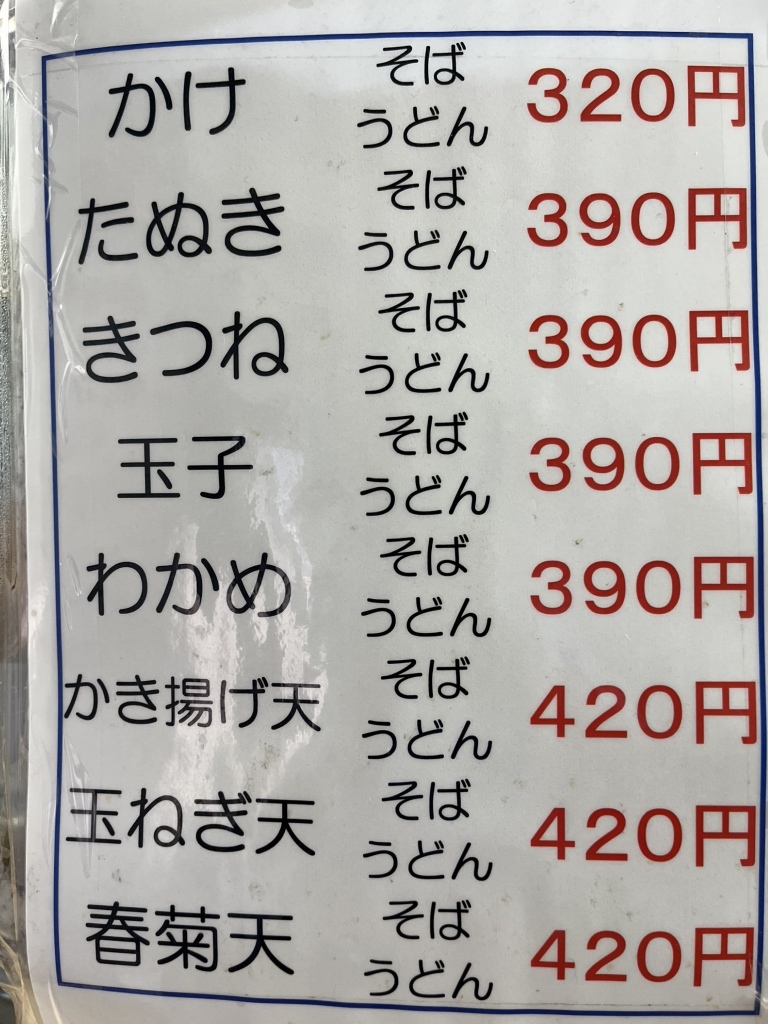 かけ そば うどん 320円
たぬき そば うどん 390円
きつね そば うどん 390円
玉子 そば うどん 390円
わかめ そば うどん 390円
かき揚げ天 そば うどん 420円
玉ねぎ天 そば うどん 420円
春菊天 そば うどん 420円